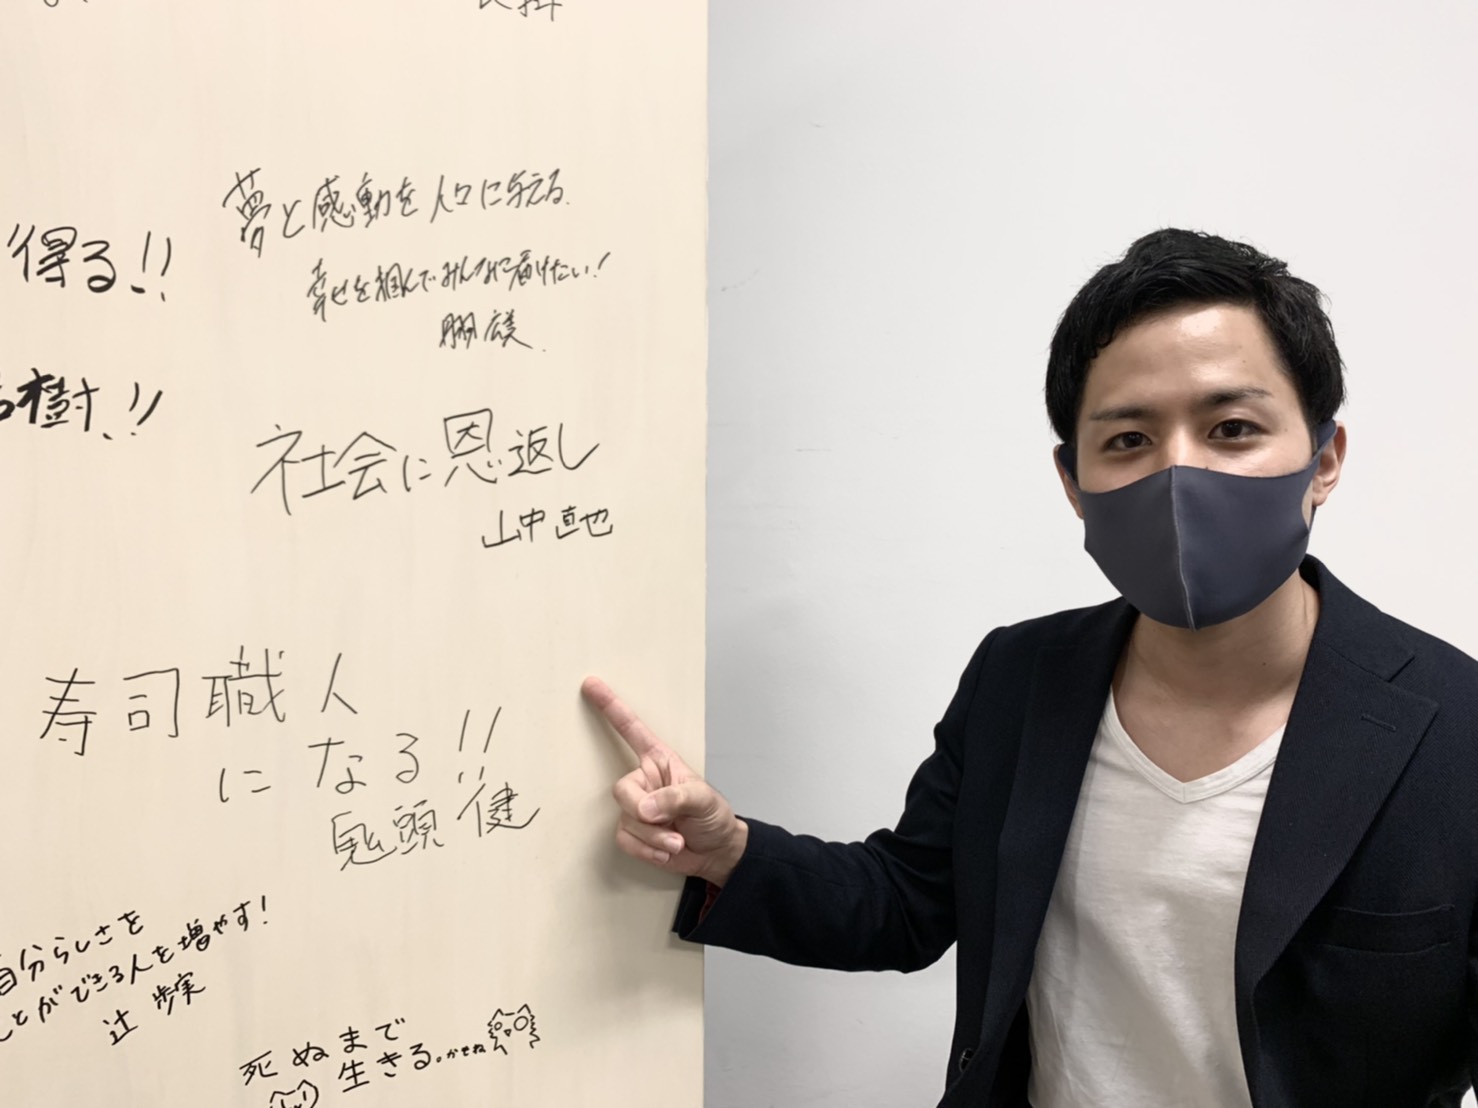 得る!!
樹!!
夢と感動を人々に与える
幸せを掴んでみんなに届けたい!
社会に恩返し
山中直也
寿司職人
になる!!
鬼頭 健
自分らしさを
ことができる人を増やす!
辻 歩実
死ぬまで
生きる。かせね